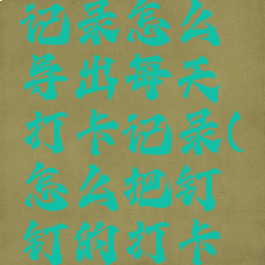 记录怎么
导出每天
打卡记录(
怎么把钉
钉的打卡